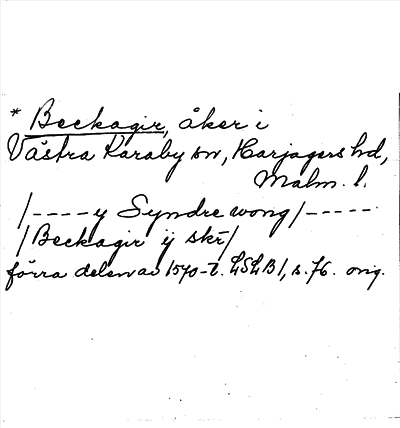 * Beckagir, åker i
Västra Karaby sn, Harjagers hd,
Malm. l.
/----y Syndre wong/-----
/Beckagir ij skr/
förra delen av 1570-t. LSLB1, s. 76. orig.